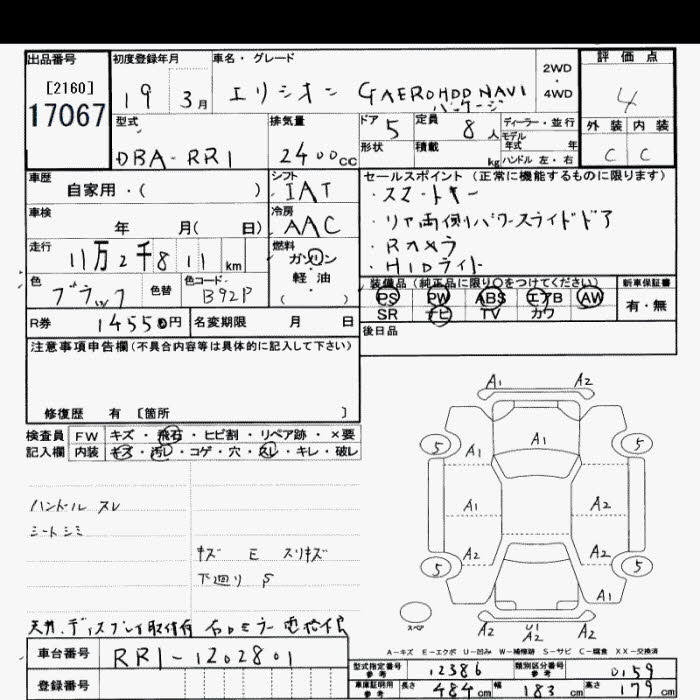 出品番号
[2160]
17067
初度登録年月
19 3月
車名・グレード
エリシオン G AERO HDD NAVI
パッケージ
2WD
・
4WD
評価点
4
外装 内装
C C
型式
DBA-RR1
排気量
2400cc
ドア 5
定員 8人
形状
積載 kg
ディーラー・並行
モデル
年式 年
ハンドル 左・右
車歴
自家用・( )
シフト
IAT
車検
年 月( 日)
冷房
AAC
走行
11万2千811 km
燃料
ガソリン
軽・油
( )
色
ブラック
色替
色コード
B92P
R券 14550円
名変期限 月 日
セールスポイント(正常に機能するものに限ります)
・スマートキー
・リア両側パワースライドドア
・Rカメラ
・HIDライト
装備品(純正品に限り○をつけてください)
PS PW ABS エアB AW
SR ナビ TV カワ
新車保証書
有・無
後日品
注意事項申告欄(不具合内容等は具体的に記入して下さい)
修復歴 有 [箇所 ]
検査員
記入欄
FW キズ・飛石・ヒビ割・リペア跡・×要
内装 キズ・汚レ・コゲ・穴・スレ・キレ・破レ
ハンドル スレ
シートシミ
キズ E スリキズ
下廻り S
天井、ディスプレイ取付有 右ドアミラー 電格不良
A1 A2
5 A1 5
A1 A2
A2 A2
5 5
A1
スペア
A2 U1 A2
A2
A-キズ E-エクボ U-凹み W-補修跡 S-サビ C-腐食 XX-交換済
車台番号
RR1-1202801
登録番号
型式指定番号
参考
12386
類別区分番号
参考
0159
車庫証明用
参考
長さ 484cm 幅 183cm 高さ 179cm